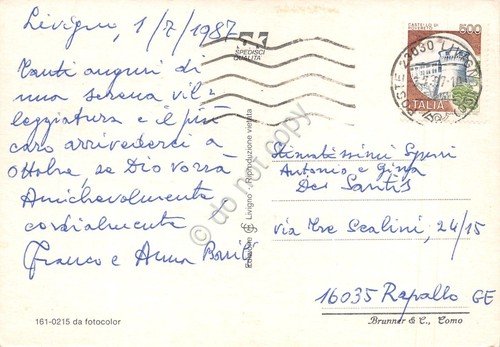 Livigno, 1/7/1987
Tanti auguri di
una serena vil-
leggiatura e il più
caro arrivederci a
Ottobre, se Dio vorrà
Amichevolmente
cordialmente
Franco e Anna
SPEDISCI
QUALITÀ
CASTELLO DI
ROVERETO
500
ITALIA
POSTE 23030 LIVIGNO
Stimatissimi Sigg.ri
Antonio e Gina
De Santis
via Tre Scalini, 24/15
16035 Rapallo GE
Livigno - Riproduzione vietata
do not copy
161-0215 da fotocolor
Brunner & C., Como